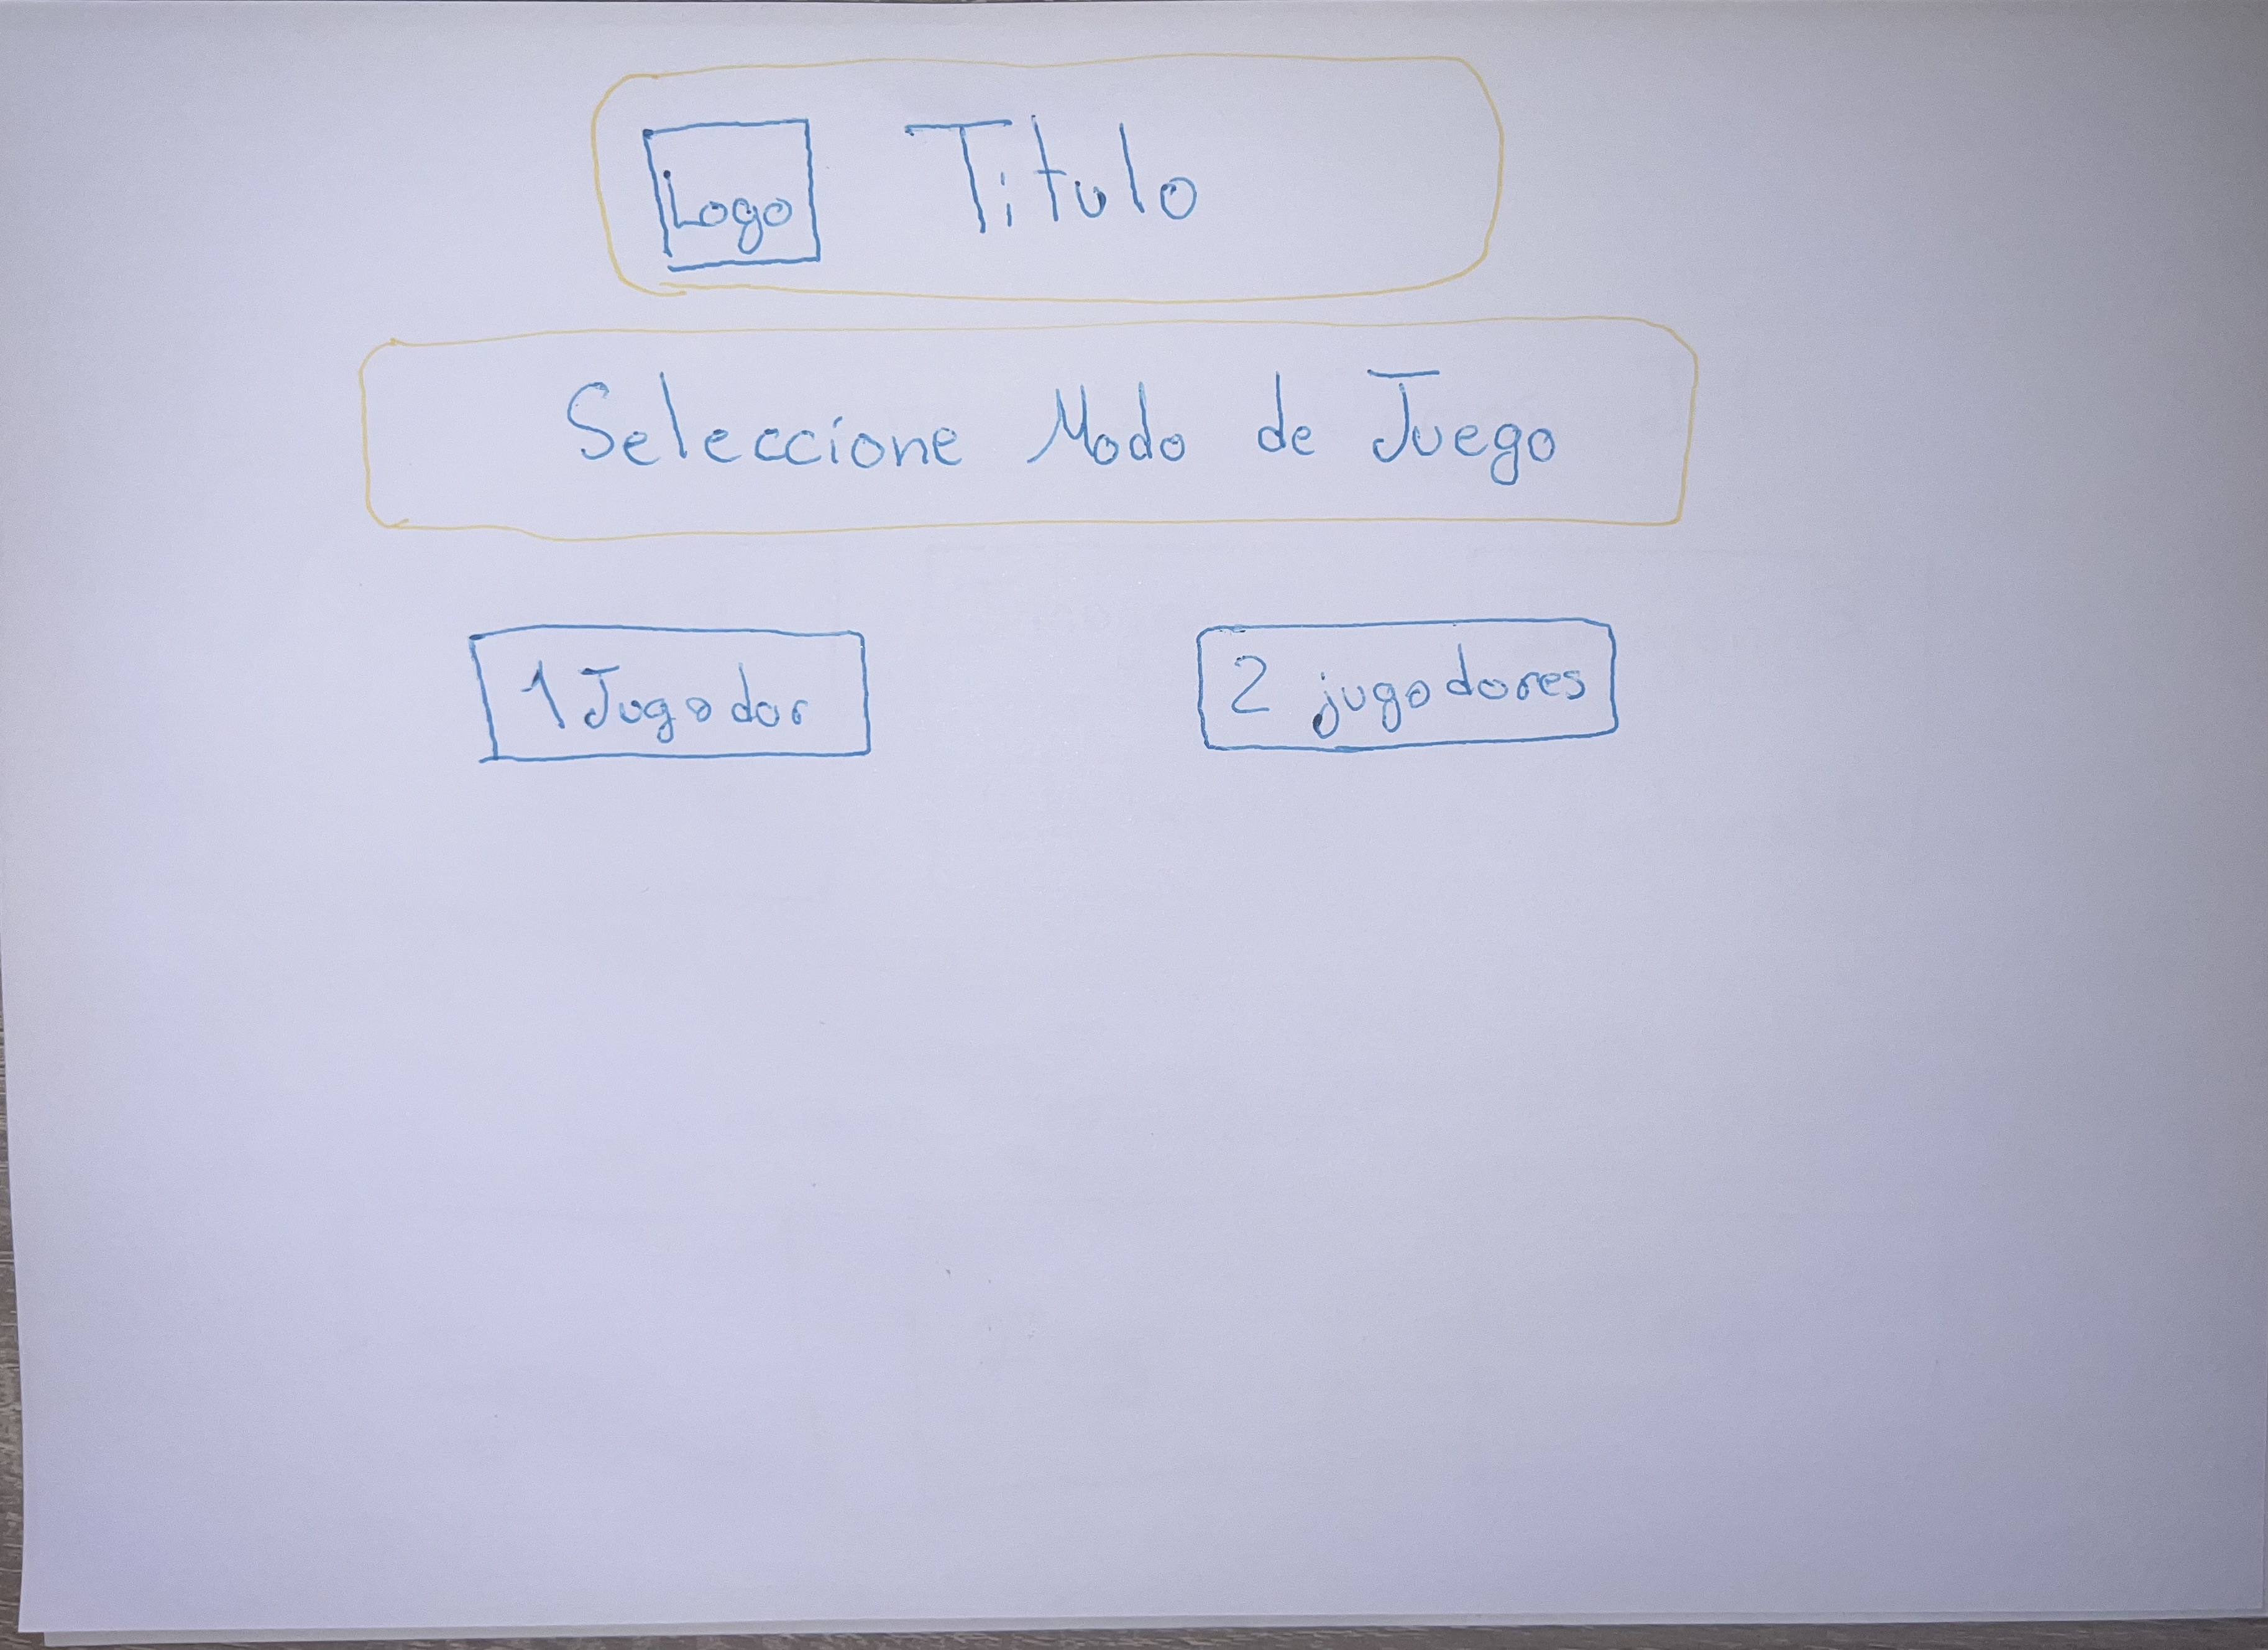 Logo Titulo
Seleccione Modo de Juego
1 Jugador 2 jugadores